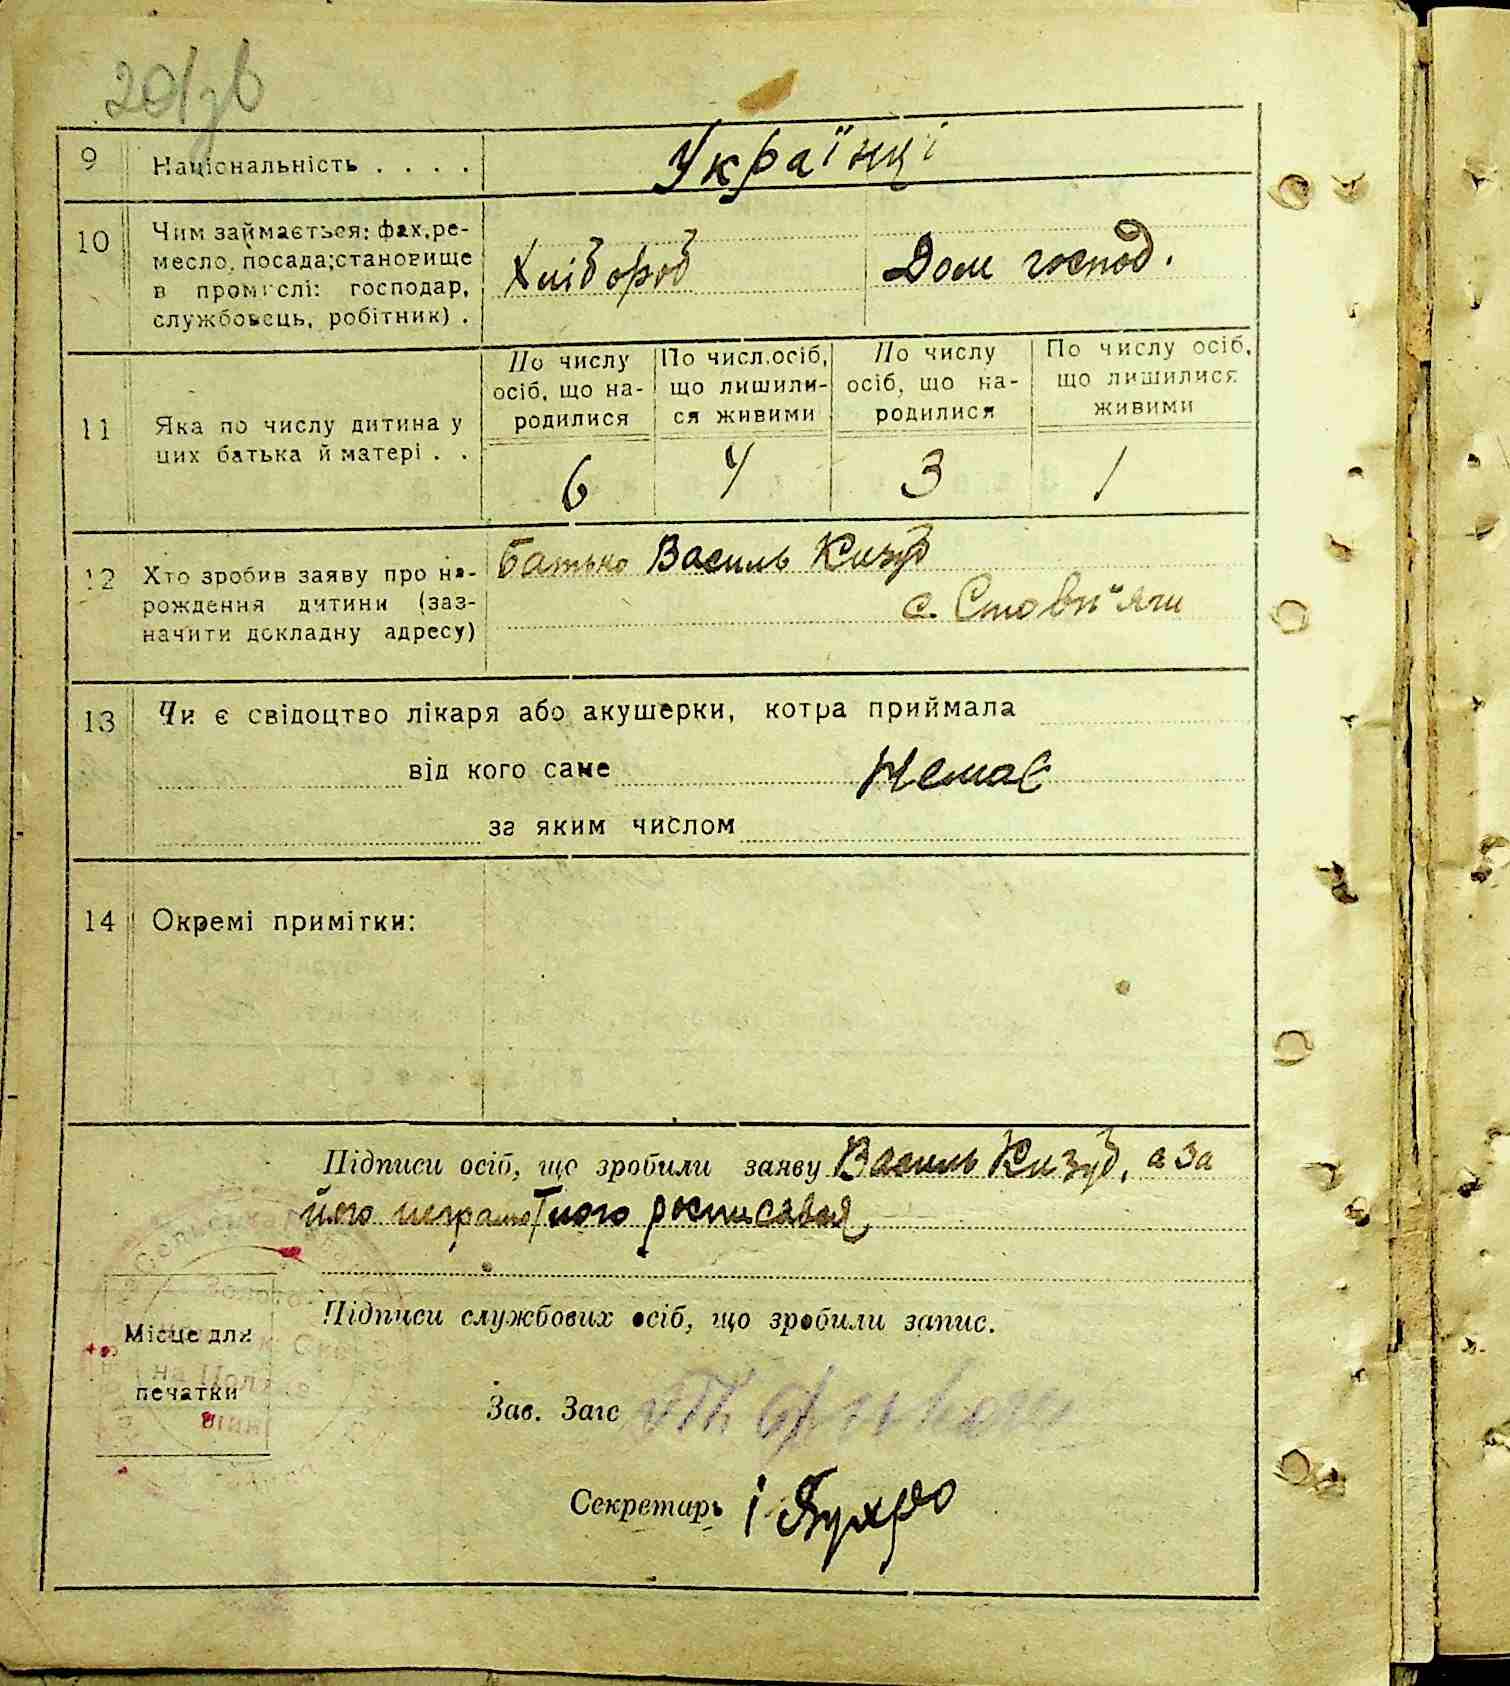 201зв
9 Національність . . . . Українці
10 Чим займається: фах, ре-
месло, посада; становище
в промислі: господар,
службовець, робітник) .
Хлібороб Дом господ.
По числу осіб, що на-родилися
По числ. осіб, що лишили-ся живими
По числу осіб, що на-родилися
По числу осіб, що лишилися живими
11 Яка по числу дитина у
цих батька й матері . .
6 4 3 1
12 Хто зробив заяву про на-
рождення дитини (заз-
начити докладну адресу)
Батько Василь Кизуб
с. Стовп"яги
13 Чи є свідоцтво лікаря або акушерки, котра приймала
від кого саме Немає
за яким числом
14 Окремі примітки:
Підписи осіб, що зробили заяву Василь Кизуб, а за
його неграмотного росписався
Підписи службових осіб, що зробили запис.
Місце для
печатки
Зав. Загс
Секретарь І